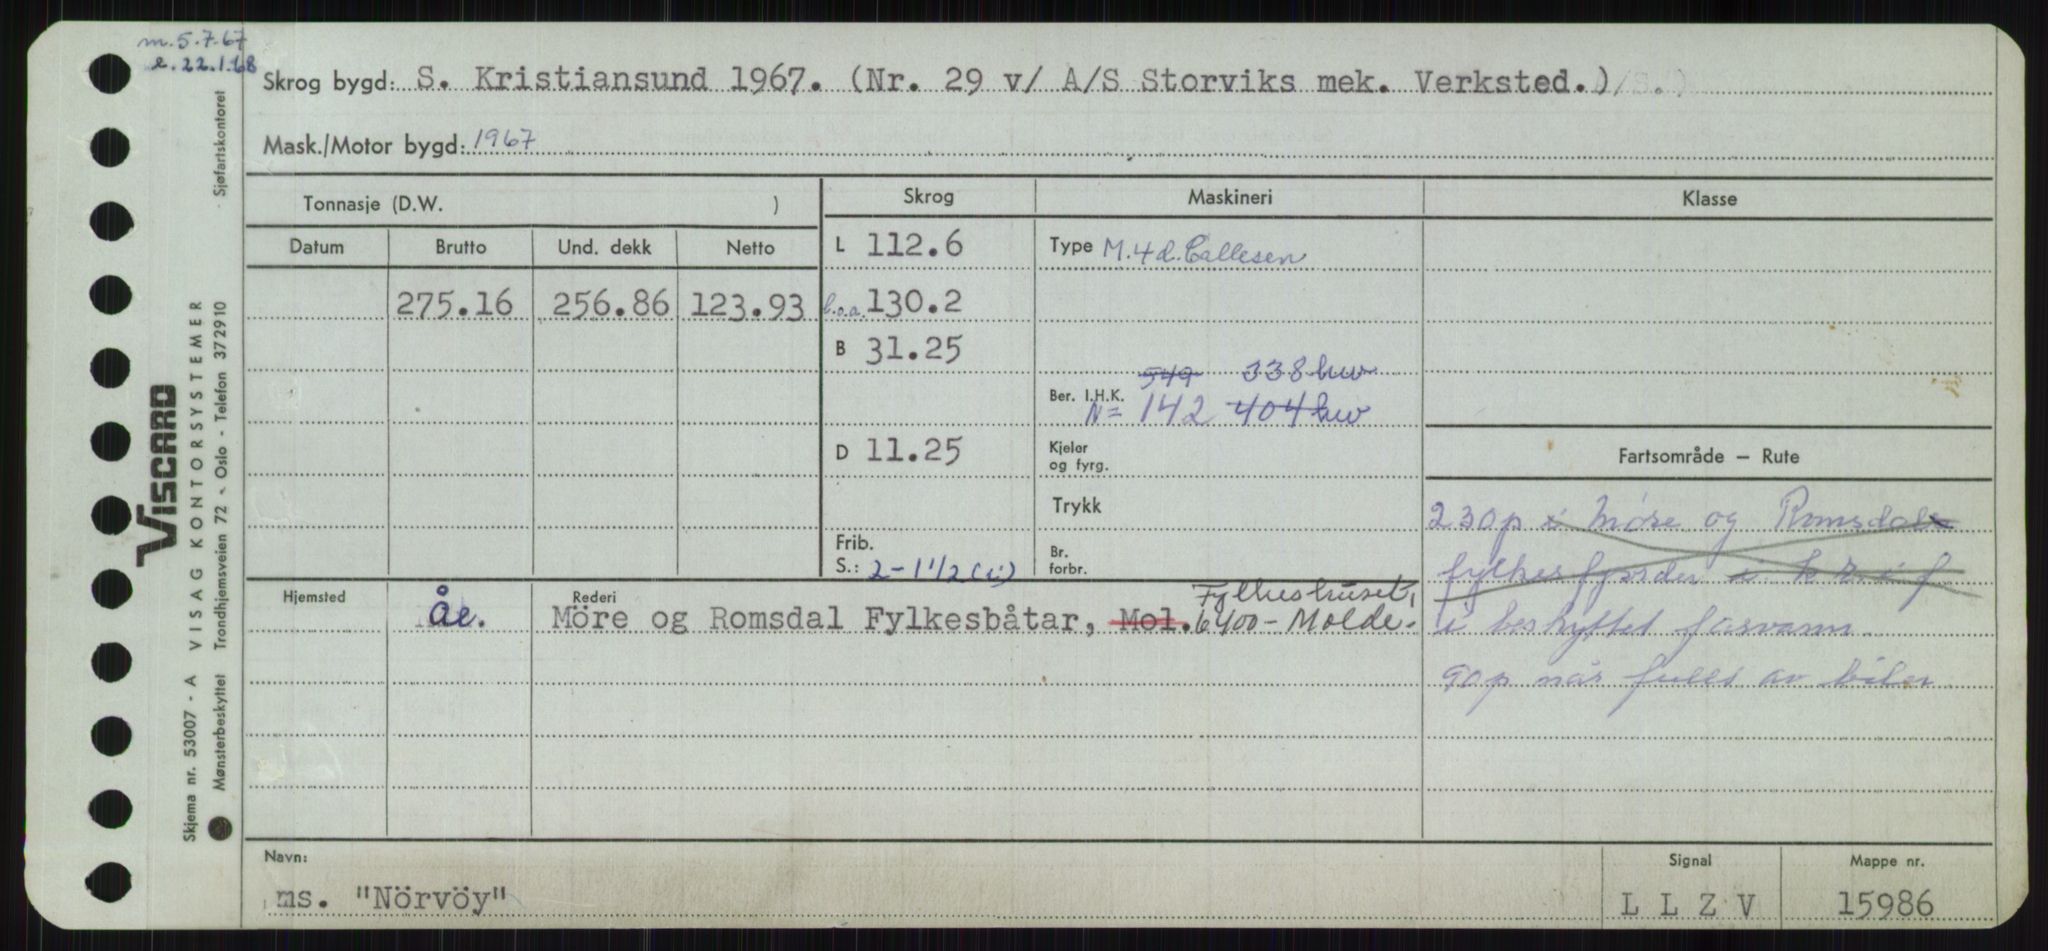 m.5.7.67
e.22.1.68
Skrog bygd: S. Kristiansund 1967. (Nr. 29 v/ A/S Storviks mek. Verksted.)
Mask./Motor bygd: 1967
Tonnasje (D.W. )
Skrog
Maskineri
Klasse
Datum Brutto Und. dekk Netto
275.16 256.86 123.93
L 112.6
l.o.a. 130.2
B 31.25
D 11.25
Frib.
S.: 2-1 1/2 (i)
Type M.4d. Callesen
549 338 hw
Ber. I.H.K.
N= 142 404 hw
Kjeler
og fyrg.
Trykk
Br.
forbr.
Fartsområde — Rute
230p i Möre og Romsdals
fylkesfjorder i k r i f
i beskyttet farvann.
90p når fullt av biler
Hjemsted Åe.
Rederi
Möre og Romsdal Fylkesbåtar, Mol. Fylkeshuset,
6400 - Molde.
Navn:
ms. "Nörvöy"
Signal
L L Z V
Mappe nr.
15986
VISCARD
VISAG KONTORSYSTEMER
Skjema nr. 53007 - A
Mønsterbeskyttet Trondhjemsveien 72 - Oslo - Telefon 372910 Sjøfartskontoret